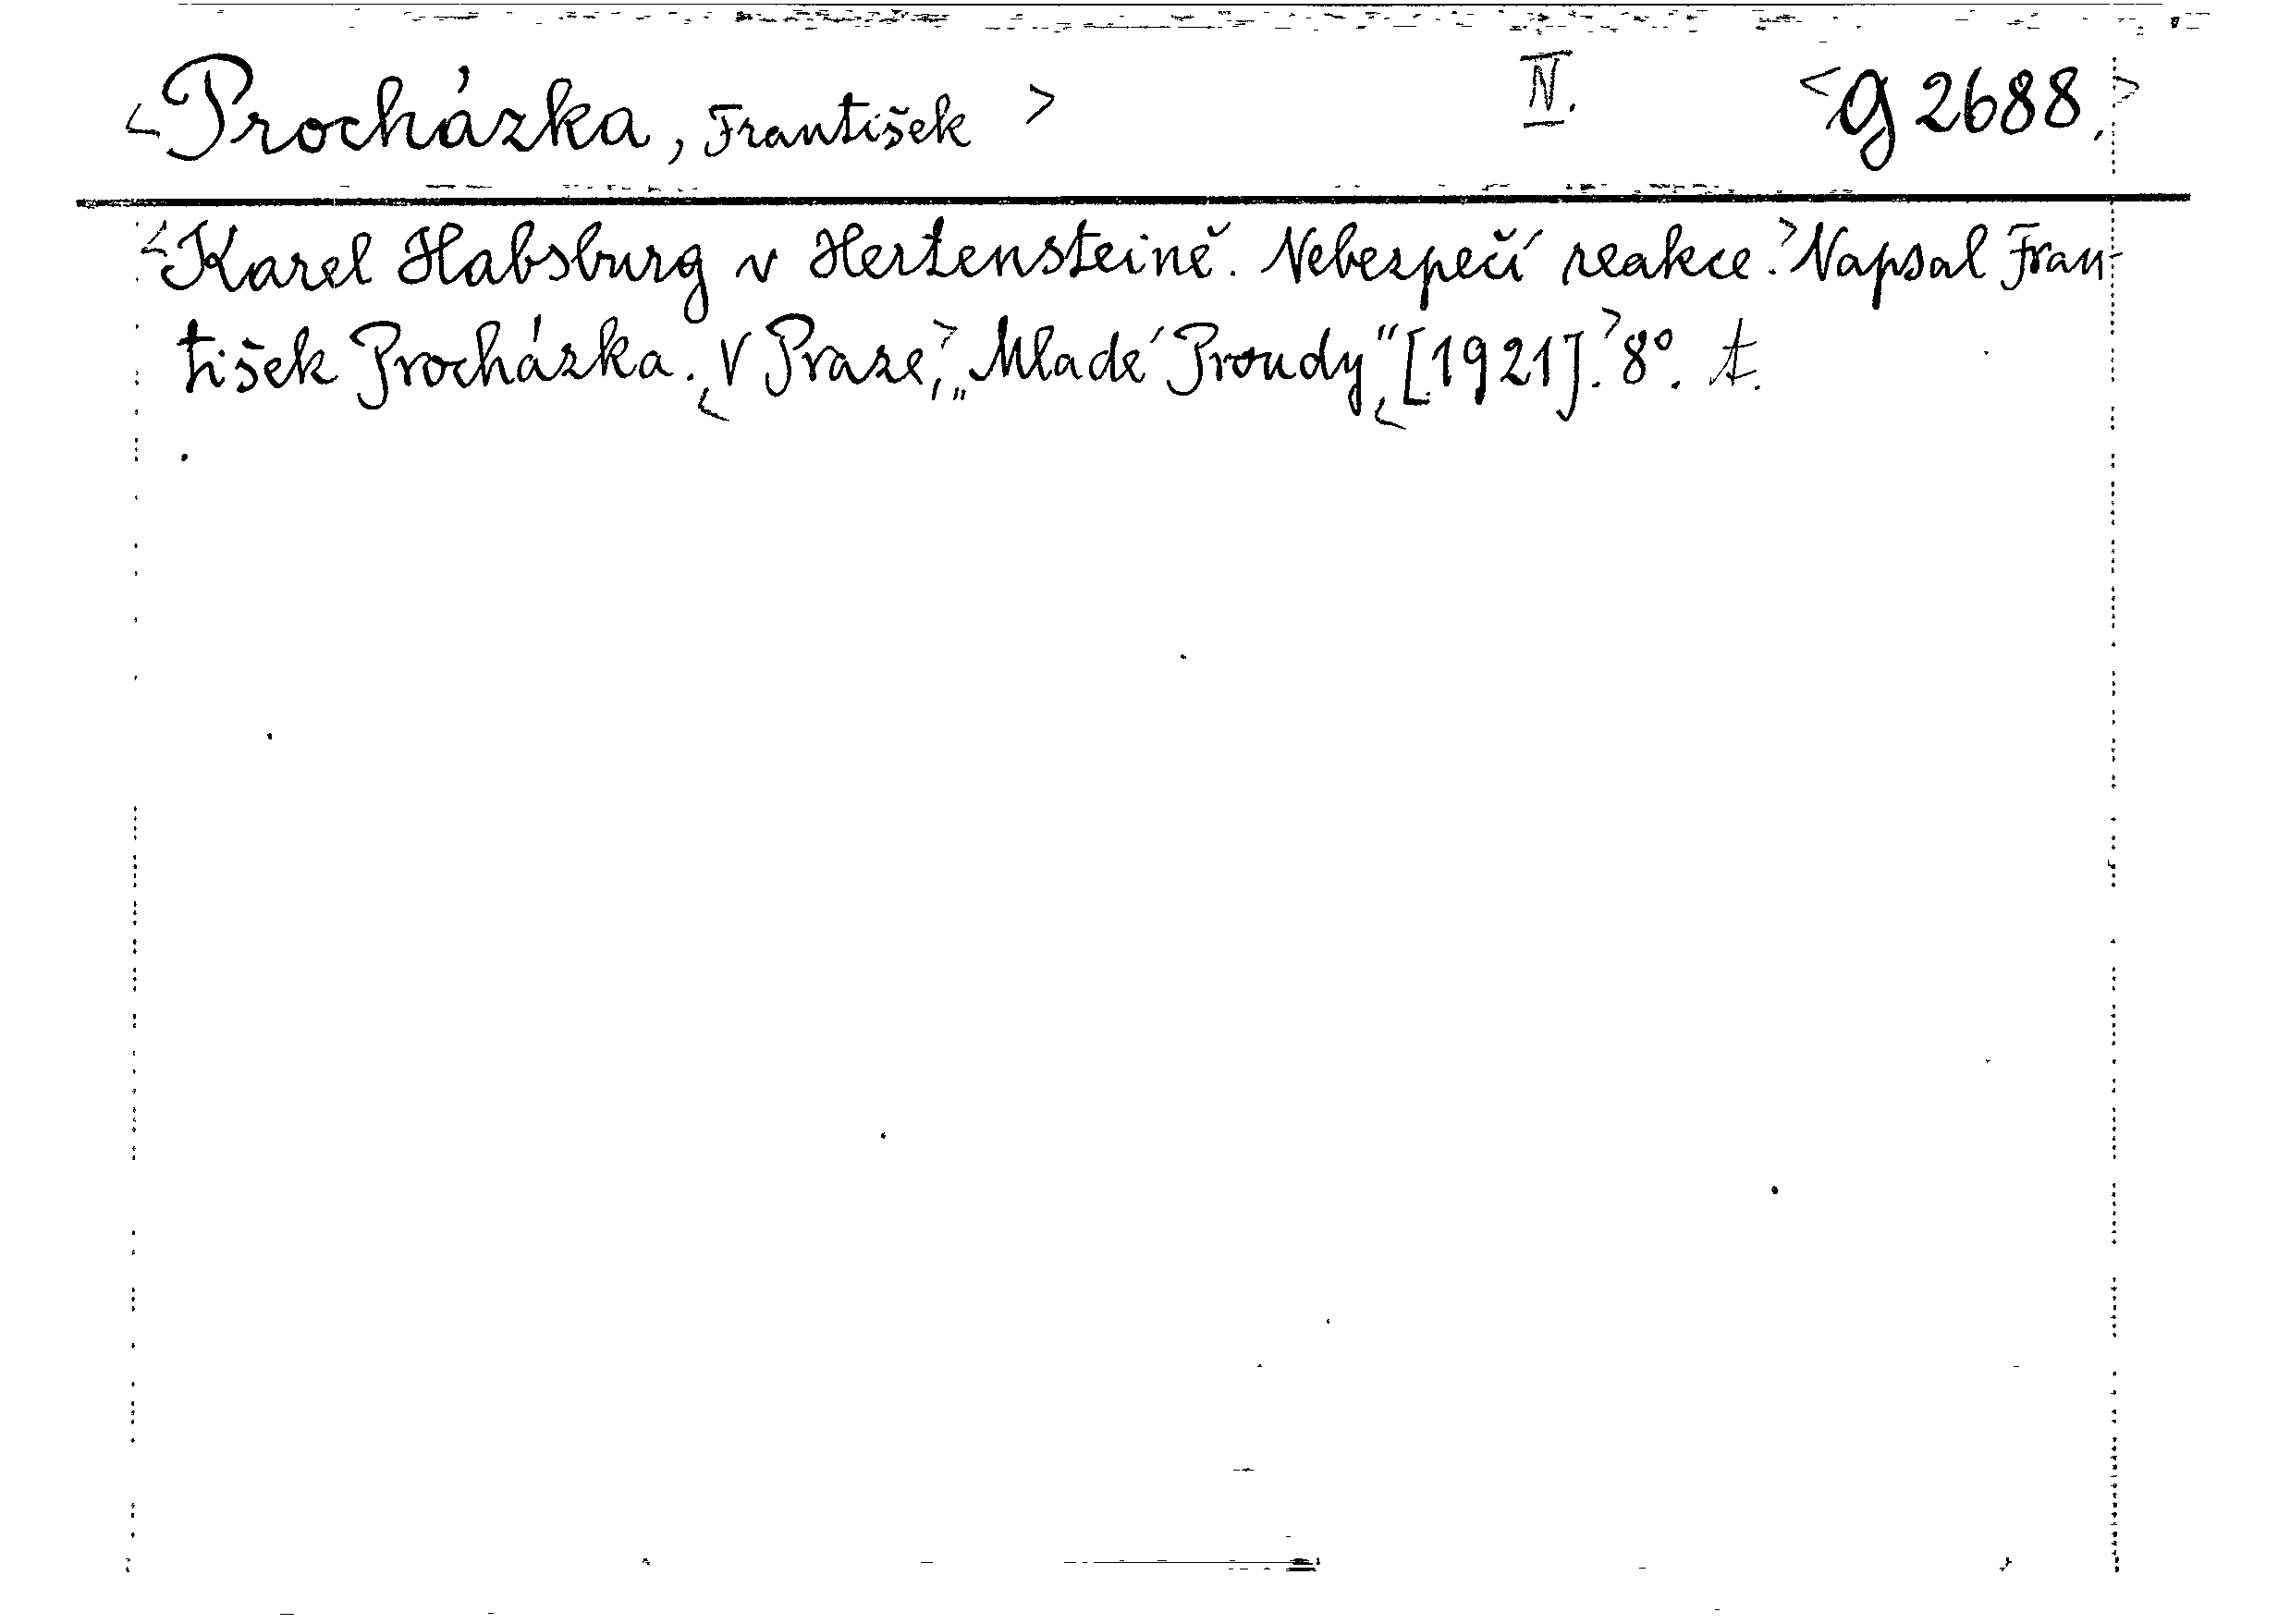 <Procházka, František> IV. <g 2688.>
<Karel Habsburg v Hertensteině. Nebezpečí reakce.> Napsal Fran-
tišek Procházka. <V Praze,> „Mladé Proudy“ <[1921].> 8°. t.